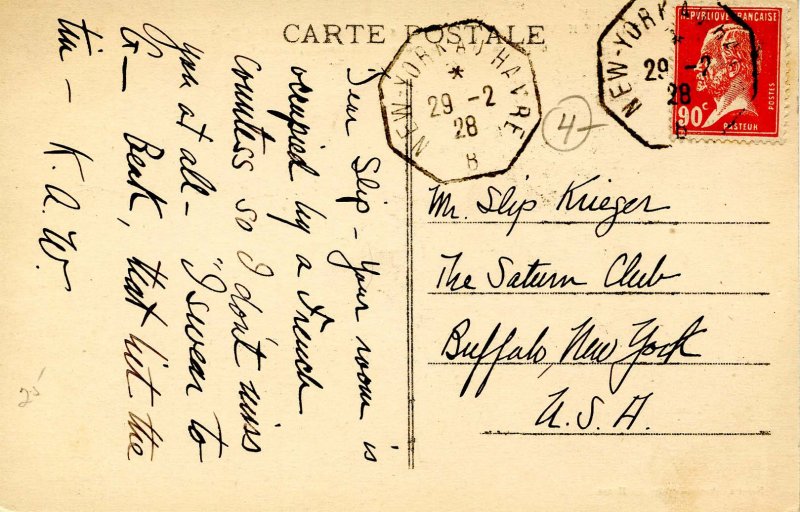 CARTE POSTALE
NEW-YORK AU HAVRE
*
29 -2
28
B
NEW-YORK AU HAVRE
*
29 -2
28
B
REPVBLIQUE FRANÇAISE
POSTES
90c
PASTEUR
4-
Dear Slip - Your room is
occupied by a French
Countess so I don't miss
you at all - "I swear to
G- Beak, that hit the
tin -
K. A. W.
25
Mr. Slip Krieger
The Saturn Club
Buffalo, New York
U. S. A.